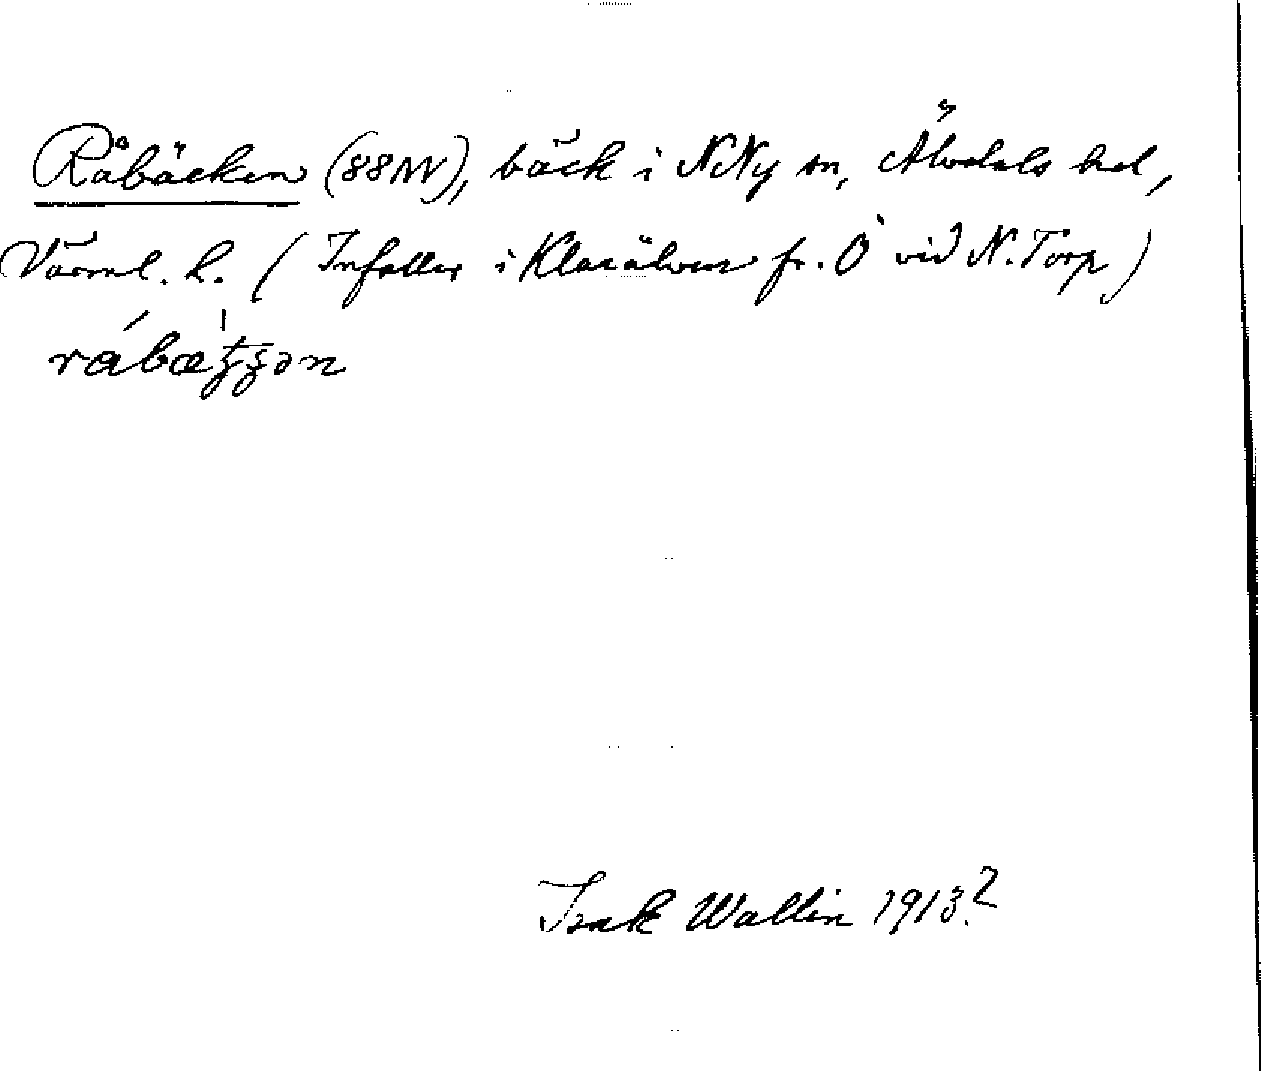 Råbäcken (88NV), bäck i NNy sn, Älvdals hd,
Värml. l. (Infaller i Klarälven fr. Ö vid N. Torp)
Isak Wallin 1913?